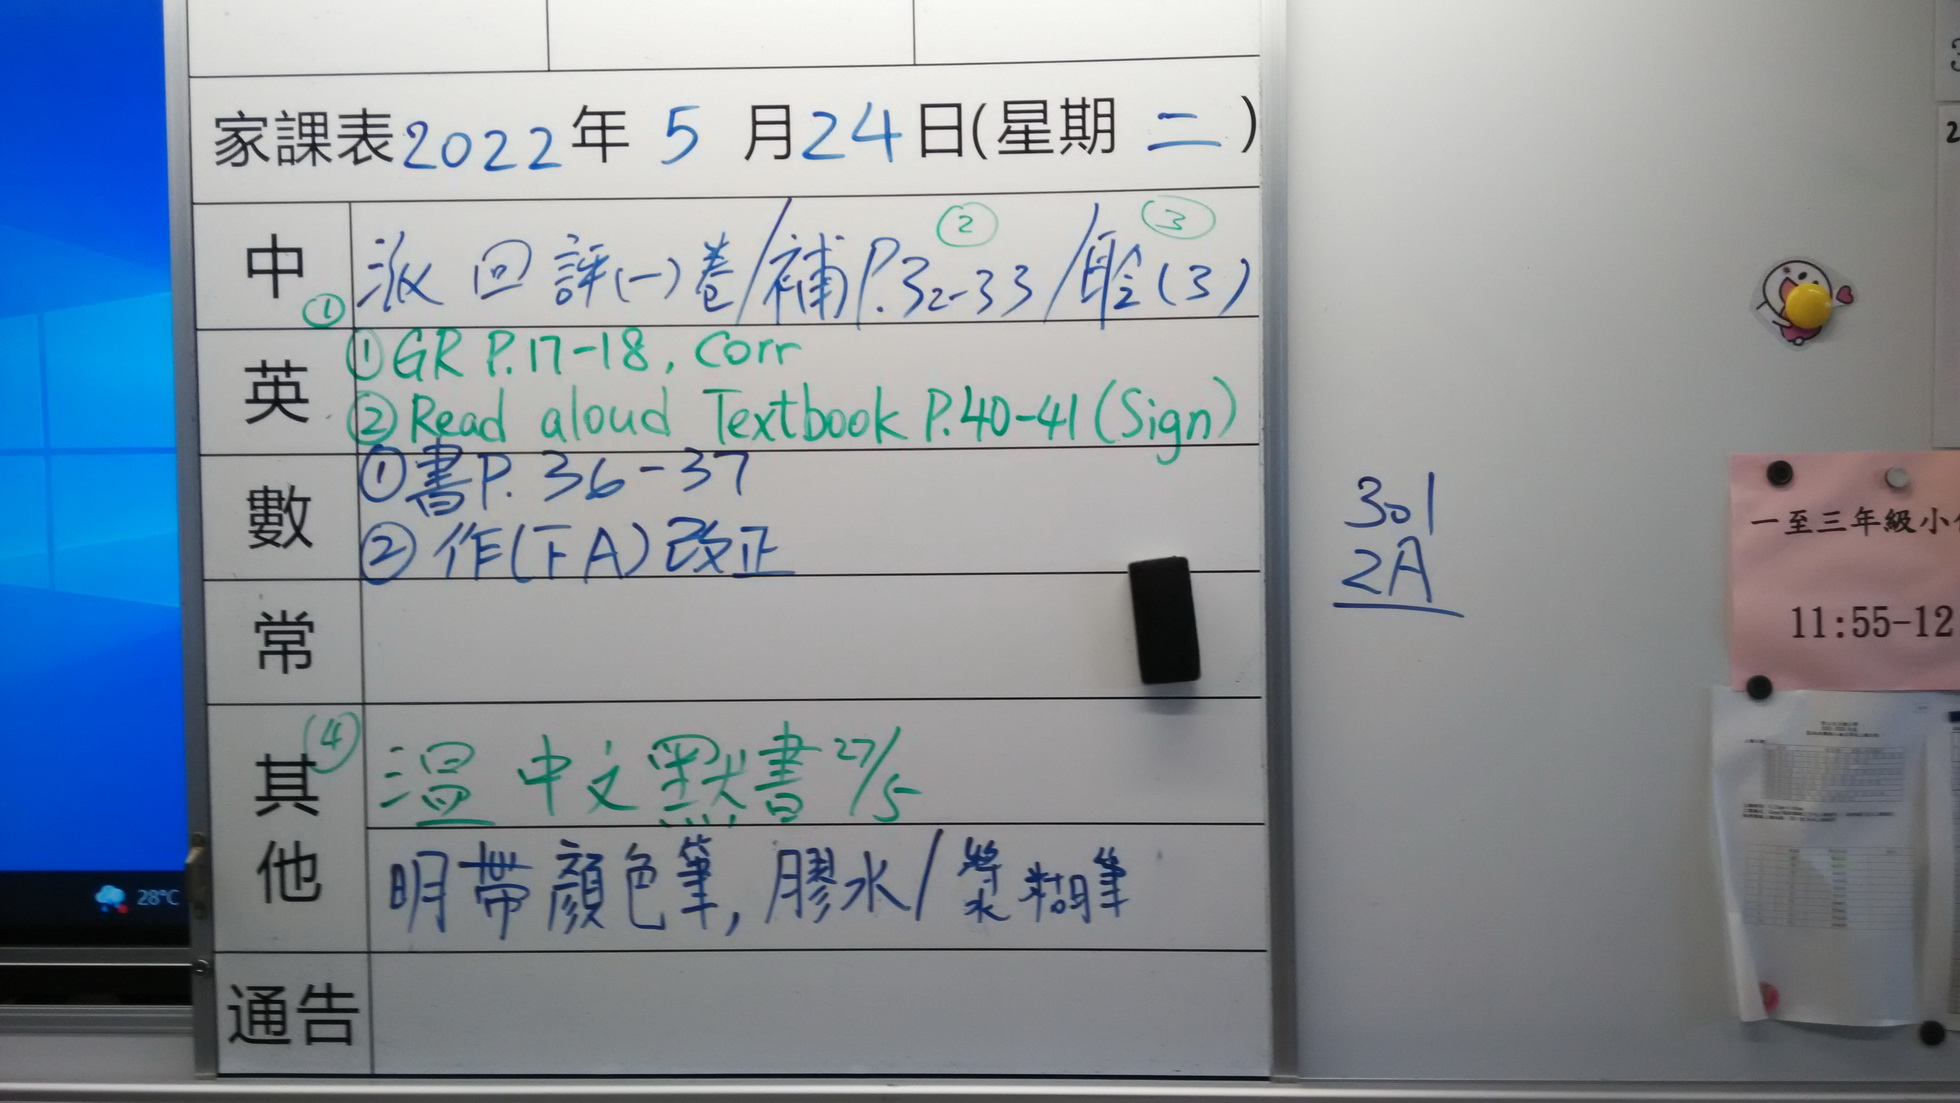 家課表2022年 5 月24日(星期 二 )
中 ① 派 回 評(一)卷/補P.32-33 ② /聆(3) ③
英 ①GR P.17-18, Corr
②Read aloud Textbook P.40-41(Sign)
數 ①書P. 36-37
②作(下A)改正
常
其他 ④ 溫 中文默書27/5
明帶顏色筆, 膠水/漿糊筆
通告
301
2A
一至三年級小
11:55-12
28°C